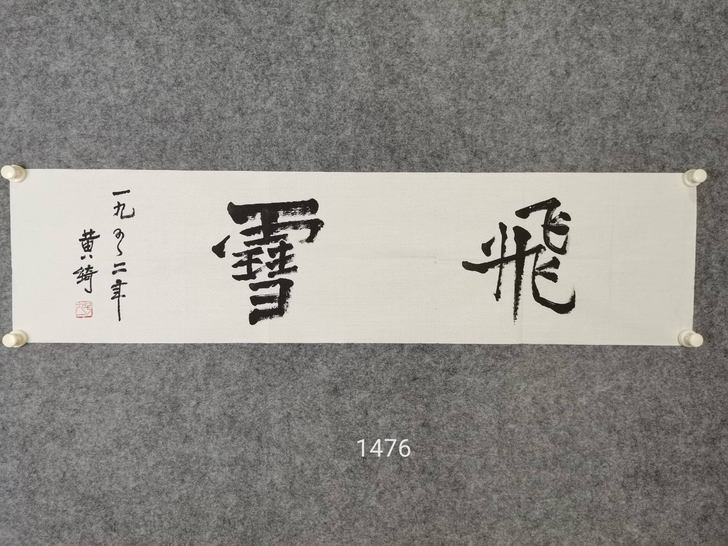 飛雪
一九九二年
黄綺
1476